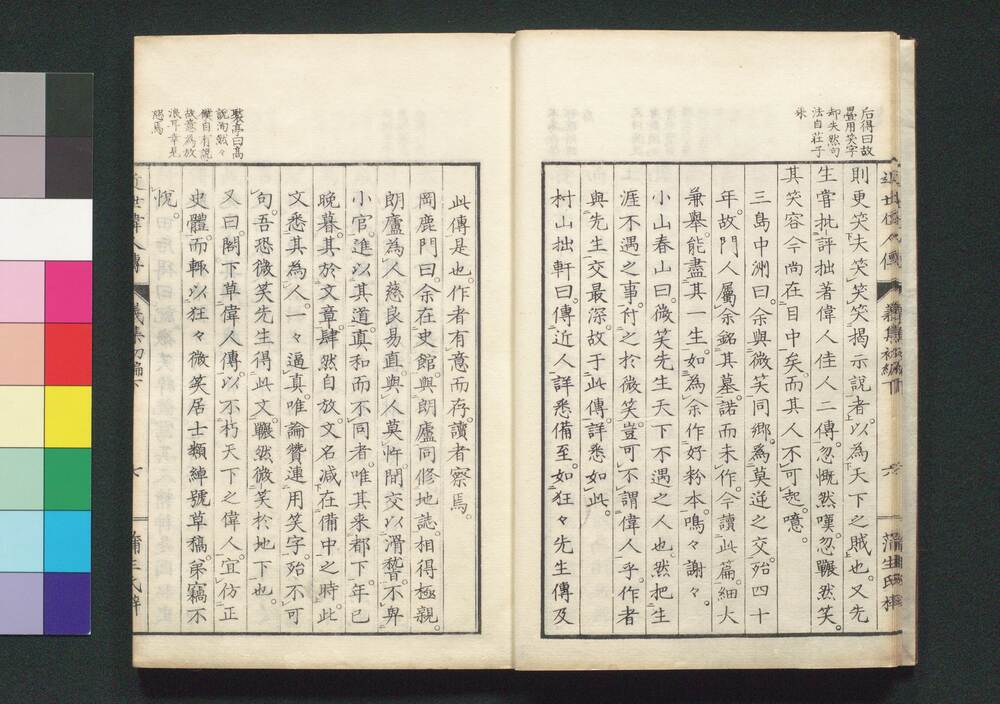 后得曰故
疊用笑字
却失然句
法自莊子
来
則更笑夫笑笑笑揭示說者以為天下之賊也又先
生嘗批評拙著偉人佳人二傳忽慨然嘆忽囅然笑
其笑容今尚在目中矣而其人不可起噫
三島中洲曰余與微笑同鄉爲莫逆之交殆四十
年故門人屬余銘其墓諾而未作今讀此篇細大
兼舉能盡其一生如為余作好粉本嗚々謝々
小山春山曰微笑先生天下不遇之人也然把生
涯不遇之事付之於微笑豈可不謂偉人乎作者
與先生交最深故于此傳詳悉如此
村山拙軒曰傳近人詳悉備至如狂々先生傳及
近世偉人傳
義集初編下
六
蒲生氏梓
聚亭曰高
說洵然々
僕自有說
故意為放
浪耳幸見
恕焉
此傳是也作者有意而存讀者察焉
岡鹿門曰余在史館與朗廬同修地誌相得極親
朗廬為人慈良易直與人莫忤閒交以滑稽不卑
小官進以其道真和而不同者唯其来都下年已
晚暮其於文章肆然自放文名减在備中之時此
文悉其為人一々逼真唯論贊連用笑字殆不可
句吾恐微笑先生得此文囅然微笑於地下也
又曰閣下草偉人傳以不朽天下之偉人宜仿正
史體而輙以狂々微笑居士類綽號草稿弟竊不
悅